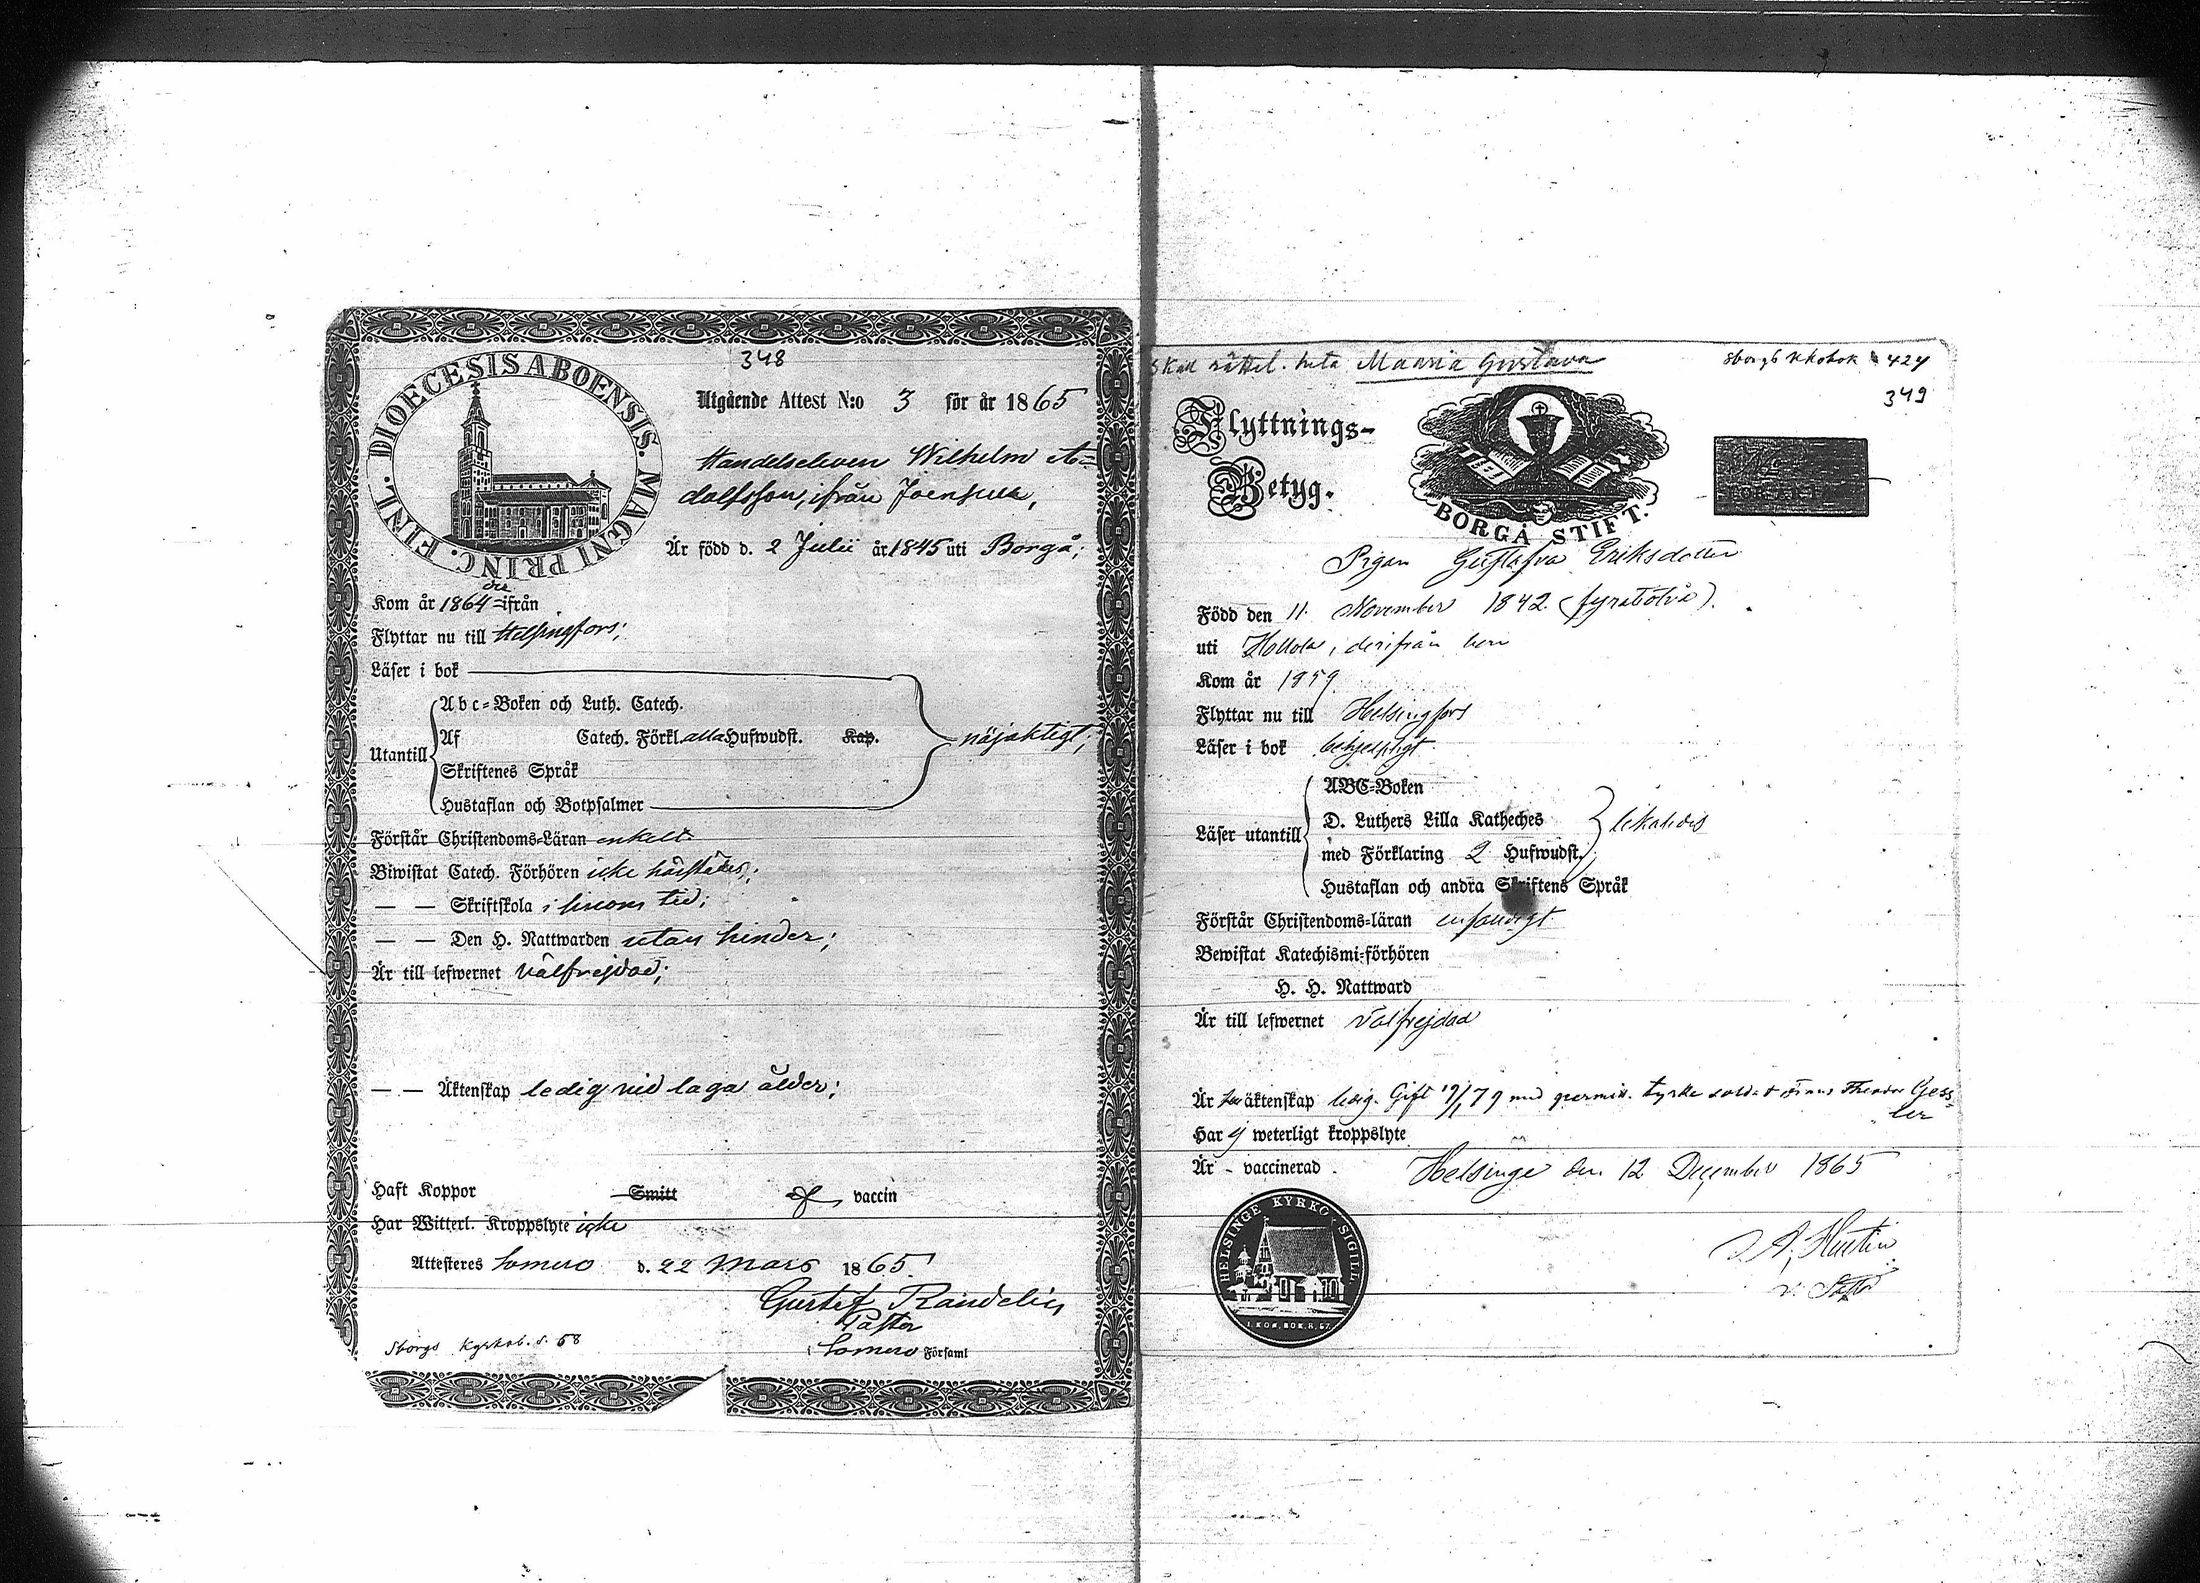 348
DIOECESIS ABOENSIS. MAGNI PRINC. FINL.
Utgående Attest N:o 3 för år 1865
Handelseleven Wilhelm A=
dolfsson, ifrån Joensuu,
Är född d. 2 Julii år 1845 uti Borgå;
Kom år 1864 ifrån
Flyttar nu till Helsingfors;
Läser i bok
Utantill
Abc=Boken och Luth. Catech.
Af Catech. Förkl. alla Hufwudst. Kap.
Skriftenes Språk
Hustaflan och Botpsalmer
nöjaktigt;
Förstår Christendoms=Läran enkelt.
Biwistat Catech. Förhören icke härstädes;
— — Skriftskola i sinom tid;
— — Den H. Nattwarden utan hinder;
Är till lefwernet välfrejdad;
— — Äktenskap ledig vid laga ålder;
Haft Koppor Smitt vaccin
Har Witterl. Kroppslyte icke
Attesteres Somero d. 22 Mars 1865.
Gustef Randelin
Pastor
i Somero Församl
Sborgs Kyrkob. s. 68
skall rättel. heta Maaria Gustava
Sborgs kkobok 424
349
Flyttnings=
Betyg.
BORGÅ STIFT.
Pigan Gustafva Eriksdotter
Född den 11. November 1842. (fyratiotvå).
uti Hollola, derifrån hon
Kom år 1859
Flyttar nu till Helsingfors
Läser i bok behjelpligt
Läser utantill
ABC=Boken
D. Luthers Lilla Katheches
med Förklaring 2 Hufwudst.
Hustaflan och andra Skriftens Språk
likaledes
Förstår Christendoms=läran enfaldigt
Bewistat Katechismi=förhören
H. H. Nattward
Är till lefwernet välfrejdad
Är äktenskap ledig. Gift 19/1 79 med permitt. tyske soldat Theodor Gess=
ler
Har ej weterligt kroppslyte
Är - vaccinerad.
Helsinge den 12 December 1865
v. Pastor
HELSINGE KYRKO SIGILL